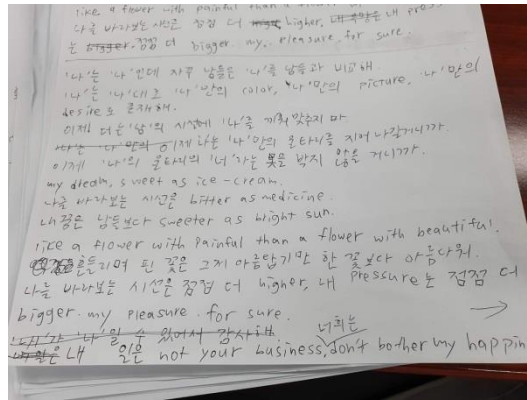 like a flower with painful than a flower with
나를 바라보는 시선은 점점 더 higher, 내 press
는 bigger. 점점 더 bigger. my. pleasure. for sure.
'나'는 '나'인데 자꾸 남들은 '나'를 남들과 비교해.
'나'는 '나'대로 '나'만의 color, '나'만의 picture, '나'만의
desire로 존재해.
이제 더는 '남'의 시선에 '나'를 끼워맞추지 마
이제 나는 '나'만의 울타리를 지어 나갈거니까.
이제 '나'의 울타리의 '너'라는 못을 박지 않을 거니까.
my dream, sweet as ice-cream.
나를 바라보는 시선은 bitter as medicine.
내 꿈은 남들보다 sweeter as bright sun.
like a flower with painful than a flower with beautiful.
흔들리며 핀 꽃은 그저 아름답기만 한 꽃보다 아름다워.
나를 바라보는 시선은 점점 더 higher, 내 pressure는 점점 더
bigger. my pleasure. for sure.
'내'가 '나'일 수 있어서 감사해
너희는
내 일은 not your business, don't bother my happin